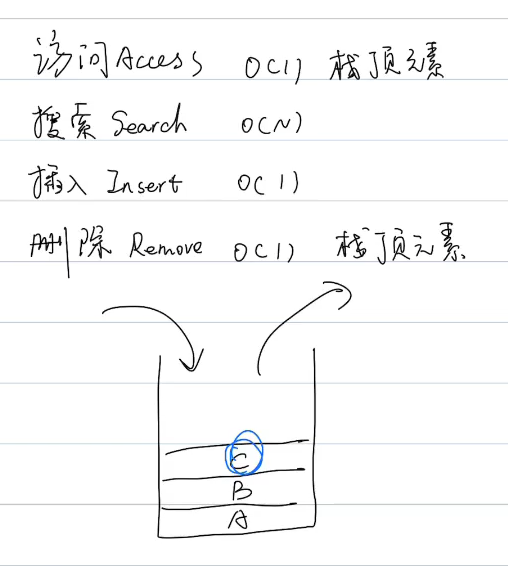 访问Access O(1) 栈顶元素
搜索 Search O(N)
插入 Insert O(1)
删除 Remove O(1) 栈顶元素
C
B
A